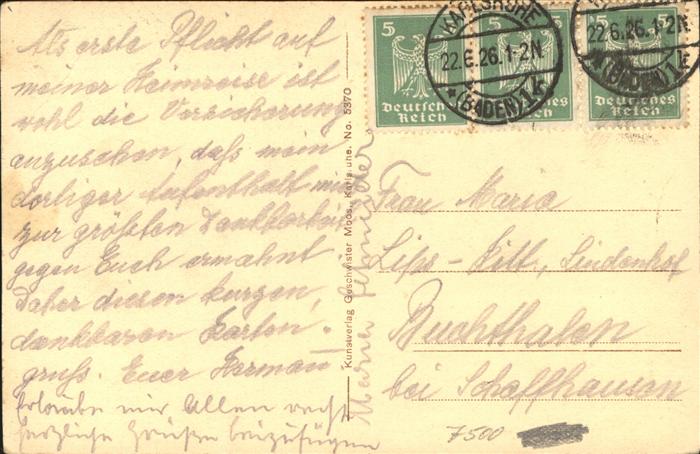 Als erste Pflicht auf
meiner Heimreise ist
wohl die Versicherung
anzusehen, dass mein
dortiger Aufenthalt mich
zur größten Dankbarkeit
gegen Euch ermahnt.
Daher diesen kurzen,
dankbaren Karten-
gruß. Euer Herman
Erlaube mir Allen recht
herzliche Grüße beizufügen
Kunstverlag Geschwister Moos, Karlsruhe. No. 5370
5
Deutsches
Reich
5
Deutsches
Reich
5
Deutsches
Reich
KARLSRUHE
22.6.26.1-2N.
* (BADEN) 1 k
22.6.26.1-2N.
(BADEN) 1 k
Frau Maria
Lips-Litt, Lindenhof
Buchthalen
bei Schaffhausen
7500